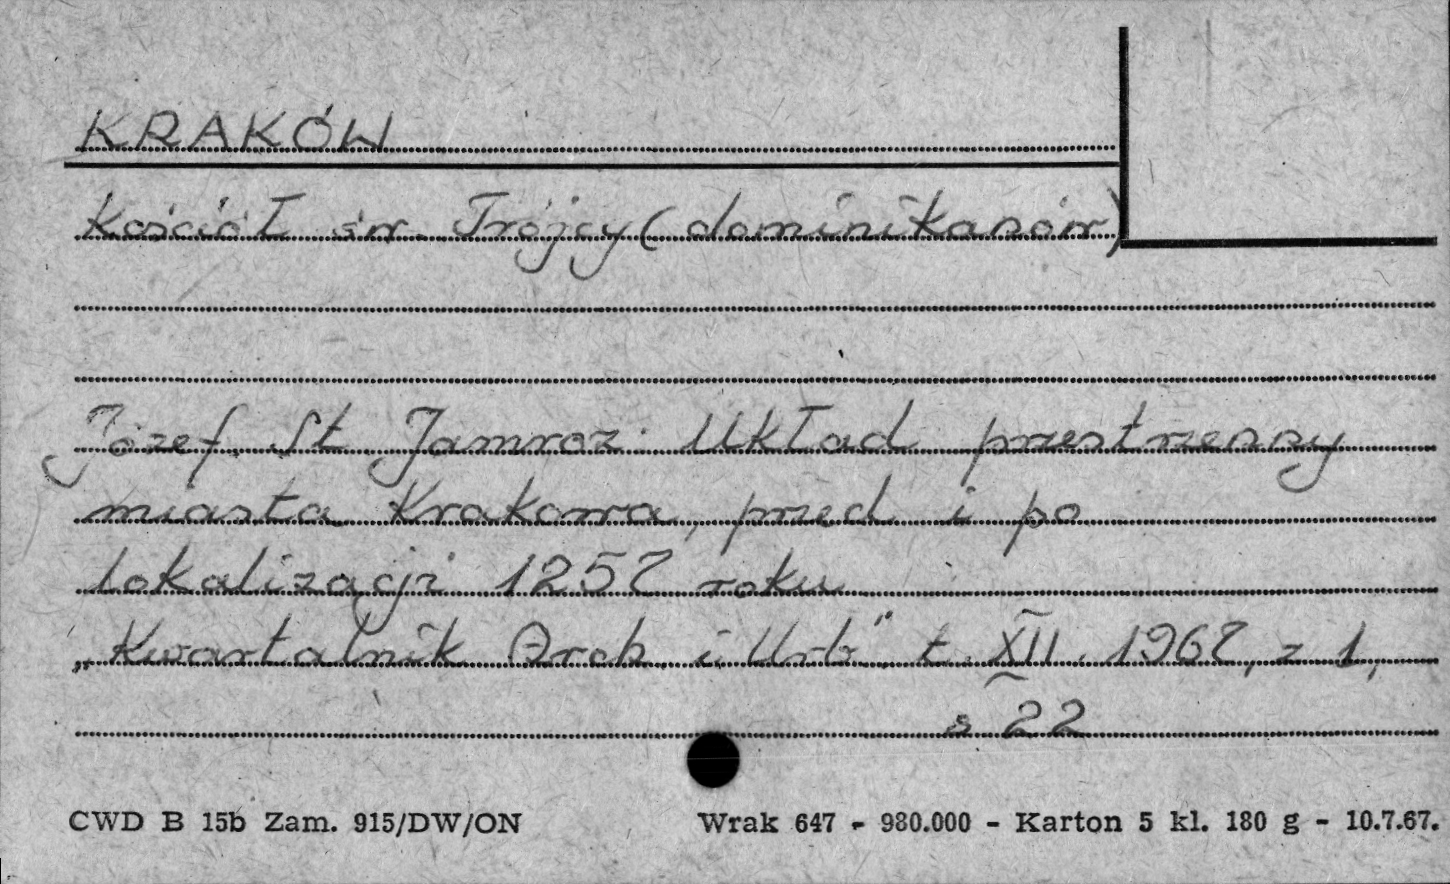 KRAKÓW
Kościół św. Trójcy (dominikanów)
Józef St Jamroz. Układ przestrzenny
miasta Krakowa, przed i po
lokalizacji 1257 roku
„Kwartalnik Arch. i Urb" t. XII. 1967, z 1,
s 22
CWD B 15b Zam. 915/DW/ON Wrak 647 - 980.000 - Karton 5 kl. 180 g - 10.7.67.